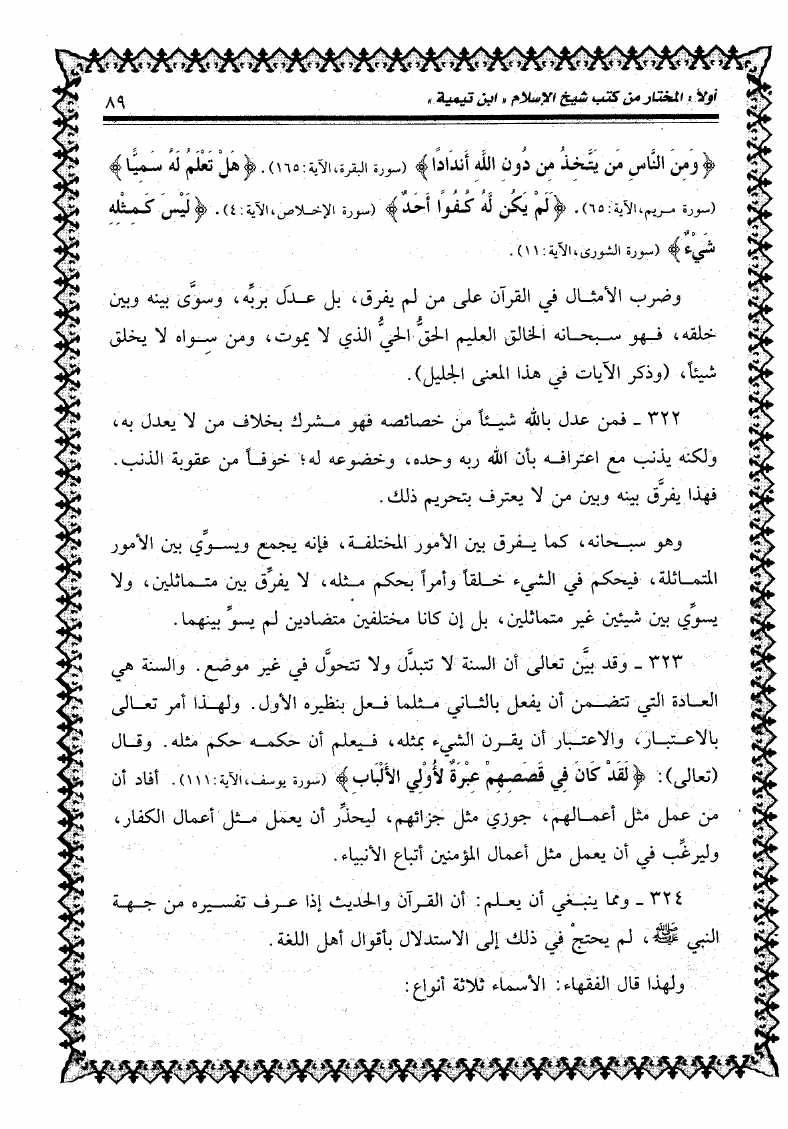 أولاً : المختار من كتب شيخ الإسلام « ابن تيمية » ٨٩
﴿ وَمِنَ النَّاسِ مَن يَتَّخِذُ مِن دُونِ اللَّه أَندَادًا﴾ (سورة البقرة،الآية:١٦٥). ﴿ هَلْ تَعْلَمُ لَهُ سَمِيًّا ﴾
(سورة مريم،الآية:٦٥). ﴿لَمْ يَكُن لَّهُ كُفُوًا أَحَدٌ ﴾ (سورة الإخلاص،الآية:٤). ﴿ لَيْسَ كَمِثْلِهِ
شَيْءٌ ﴾ (سورة الشورى،الآية:١١).
وضرب الأمثال في القرآن على من لم يفرق، بل عدَل بربِّه، وسوَّى بينه وبين
خلقه، فهو سبحانه الخالق العليم الحقُّ الحيُّ الذي لا يموت، ومن سِواه لا يخلق
شيئاً، (وذكر الآيات في هذا المعنى الجليل).
٣٢٢ ـ فمن عدل بالله شيئاً من خصائصه فهو مشرك بخلاف من لا يعدل به،
ولكنه يذنب مع اعترافه بأن الله ربه وحده، وخضوعه له؛ خوفاً من عقوبة الذنب.
فهذا يفرَّق بينه وبين من لا يعترف بتحريم ذلك.
وهو سبحانه، كما يفرق بين الأمور المختلفة، فإنه يجمع ويسوِّي بين الأمور
المتماثلة، فيحكم في الشيء خلقاً وأمراً بحكم مثله، لا يفرِّق بين متماثلين، ولا
يسوِّي بين شيئين غير متماثلين، بل إن كانا مختلفين متضادين لم يسوِّ بينهما.
٣٢٣ ـ وقد بيَّن تعالى أن السنة لا تتبدَّل ولا تتحوَّل في غير موضع. والسنة هي
العادة التي تتضمن أن يفعل بالثاني مثلما فعل بنظيره الأول. ولهذا أمر تعالى
بالاعتبار، والاعتبار أن يقرن الشيء بمثله، فيعلم أن حكمه حكم مثله. وقال
(تعالى): ﴿ لَقَدْ كَانَ فِي قَصَصِهِمْ عِبْرَةٌ لأُوْلِي الأَلْبَابِ ﴾ (سورة يوسف،الآية:١١١). أفاد أن
من عمل مثل أعمالهم، جوزي مثل جزائهم، ليحذِّر أن يعمل مثل أعمال الكفار،
وليرغِّب في أن يعمل مثل أعمال المؤمنين أتباع الأنبياء.
٣٢٤ ـ ومما ينبغي أن يعلم: أن القرآن والحديث إذا عرف تفسيره من جهة
النبي ﷺ، لم يحتجْ في ذلك إلى الاستدلال بأقوال أهل اللغة.
ولهذا قال الفقهاء: الأسماء ثلاثة أنواع: